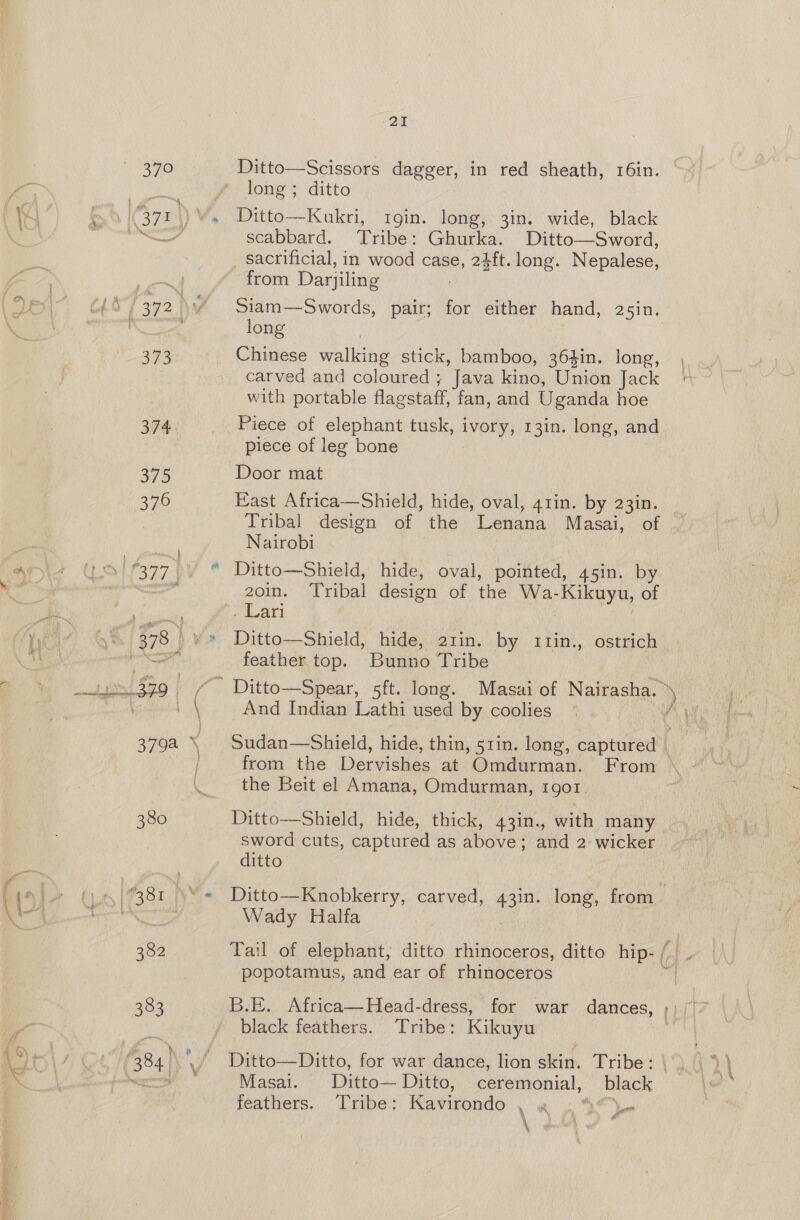 21
370 Ditto—Scissors dagger, in red sheath, 16in.
long ; ditto
371 Ditto—Kukri, 19in. long, 3in. wide, black
scabbard. Tribe: Ghurka. Ditto—Sword,
sacrificial, in wood case, 2½ft. long. Nepalese,
from Darjiling
372 Siam—Swords, pair; for either hand, 25in.
long
373 Chinese walking stick, bamboo, 36½in. long,
carved and coloured ; Java kino, Union Jack
with portable flagstaff, fan, and Uganda hoe
374 Piece of elephant tusk, ivory, 13in. long, and
piece of leg bone
375 Door mat
376 East Africa—Shield, hide, oval, 41in. by 23in.
Tribal design of the Lenana Masai, of
Nairobi
377 Ditto—Shield, hide, oval, pointed, 45in. by
20in. Tribal design of the Wa-Kikuyu, of
Lari
378 Ditto—Shield, hide, 21in. by 11in., ostrich
feather top. Bunno Tribe
379 Ditto—Spear, 5ft. long. Masai of Nairasha.
And Indian Lathi used by coolies
379a Sudan—Shield, hide, thin, 51in. long, captured
from the Dervishes at Omdurman. From
the Beit el Amana, Omdurman, 1901
380 Ditto—Shield, hide, thick, 43in., with many
sword cuts, captured as above; and 2 wicker
ditto
381 Ditto—Knobkerry, carved, 43in. long, from
Wady Halfa
382 Tail of elephant, ditto rhinoceros, ditto hip-
popotamus, and ear of rhinoceros
383 B.E. Africa—Head-dress, for war dances,
black feathers. Tribe: Kikuyu
384 Ditto—Ditto, for war dance, lion skin. Tribe:
Masai. Ditto—Ditto, ceremonial, black
feathers. Tribe: Kavirondo